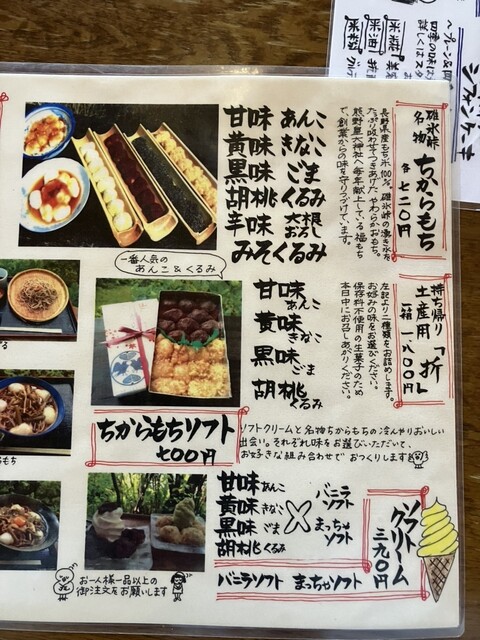 碓氷峠
名物
ちからもち
各 七二〇円
長野県産もち米100%、碓氷峠の湧き水を
たっぷり吸わせてつきあげた やわらかおもち。
熊野皇大神社へ毎年献上している 福もち
で、創業からの味を守りつづけています。
甘味 あんこ
黄味 きなこ
黒味 ごま
胡桃 くるみ
辛味 大根おろし
みそくるみ
一番人気の
あんこ&くるみ
持ち帰り
土産用「折」
一箱 一、八〇〇円
左記より二種類をお詰めします。
お好みの味をお選びください。
保存料不使用の生菓子のため
本日中にお召しあがりください。
甘味 あんこ
黄味 きなこ
黒味 ごま
胡桃 くるみ
ちからもちソフト
七〇〇円
ソフトクリームと名物ちからもちの冷んやりおいしい
出会い。それぞれ味をお選びいただいて、
お好きな組み合わせで おつくりします
甘味 あんこ
黄味 きなこ
黒味 ごま
胡桃 くるみ
×
バニラ
ソフト
まっちゃ
ソフト
ソフト
クリーム
三九〇円
バニラソフト まっちゃソフト
お一人様一品以上の
御注文をお願いします
シフォンケーキ
四季の味は
米粉
米油